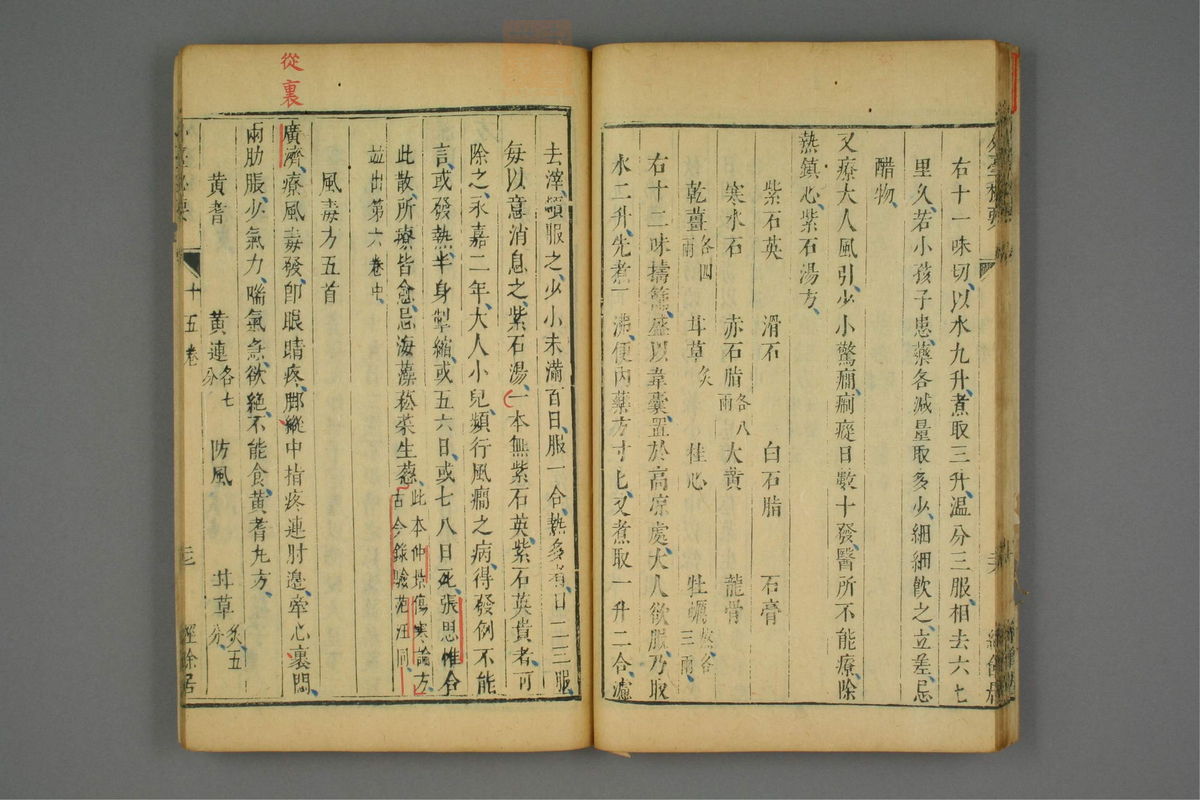 右十一味切以水九升煮取三升温分三服相去六七
里久若小孩子患藥各減量取多少細細飲之立差忌
醋物
又療大人風引少小驚癇瘛瘲日數十發醫所不能療除
熱鎮心紫石湯方
紫石英 滑石 白石脂 石膏
寒水石 赤石脂各八兩 大黄 龍骨
乾薑各四兩 甘草炙 桂心 牡蠣熬各三兩
右十二味擣篩盛以韋囊置於高凉處大人欲服乃取
水二升先煮一沸便内藥方寸匕又煮取一升二合濾
去滓頓服之少小未滿百日服一合熱多者日二三服
每以意消息之紫石湯一本無紫石英紫石英貴者可
除之永嘉二年大人小兒頻行風癇之病得發例不能
言或發熱半身掣縮或五六日或七八日死張思惟合
此散所療皆愈忌海藻菘菜生葱此本仲景傷寒論方
古今錄驗范汪同
並出第六卷中
風毒方五首
從裏
廣濟療風毒發即眼睛疼脚縱中指疼連肘邊牽心裏悶
兩肋脹少氣力喘氣急欲絶不能食黄耆丸方
黄耆 黄連各七分 防風 甘草炙五分
十五卷
經餘居